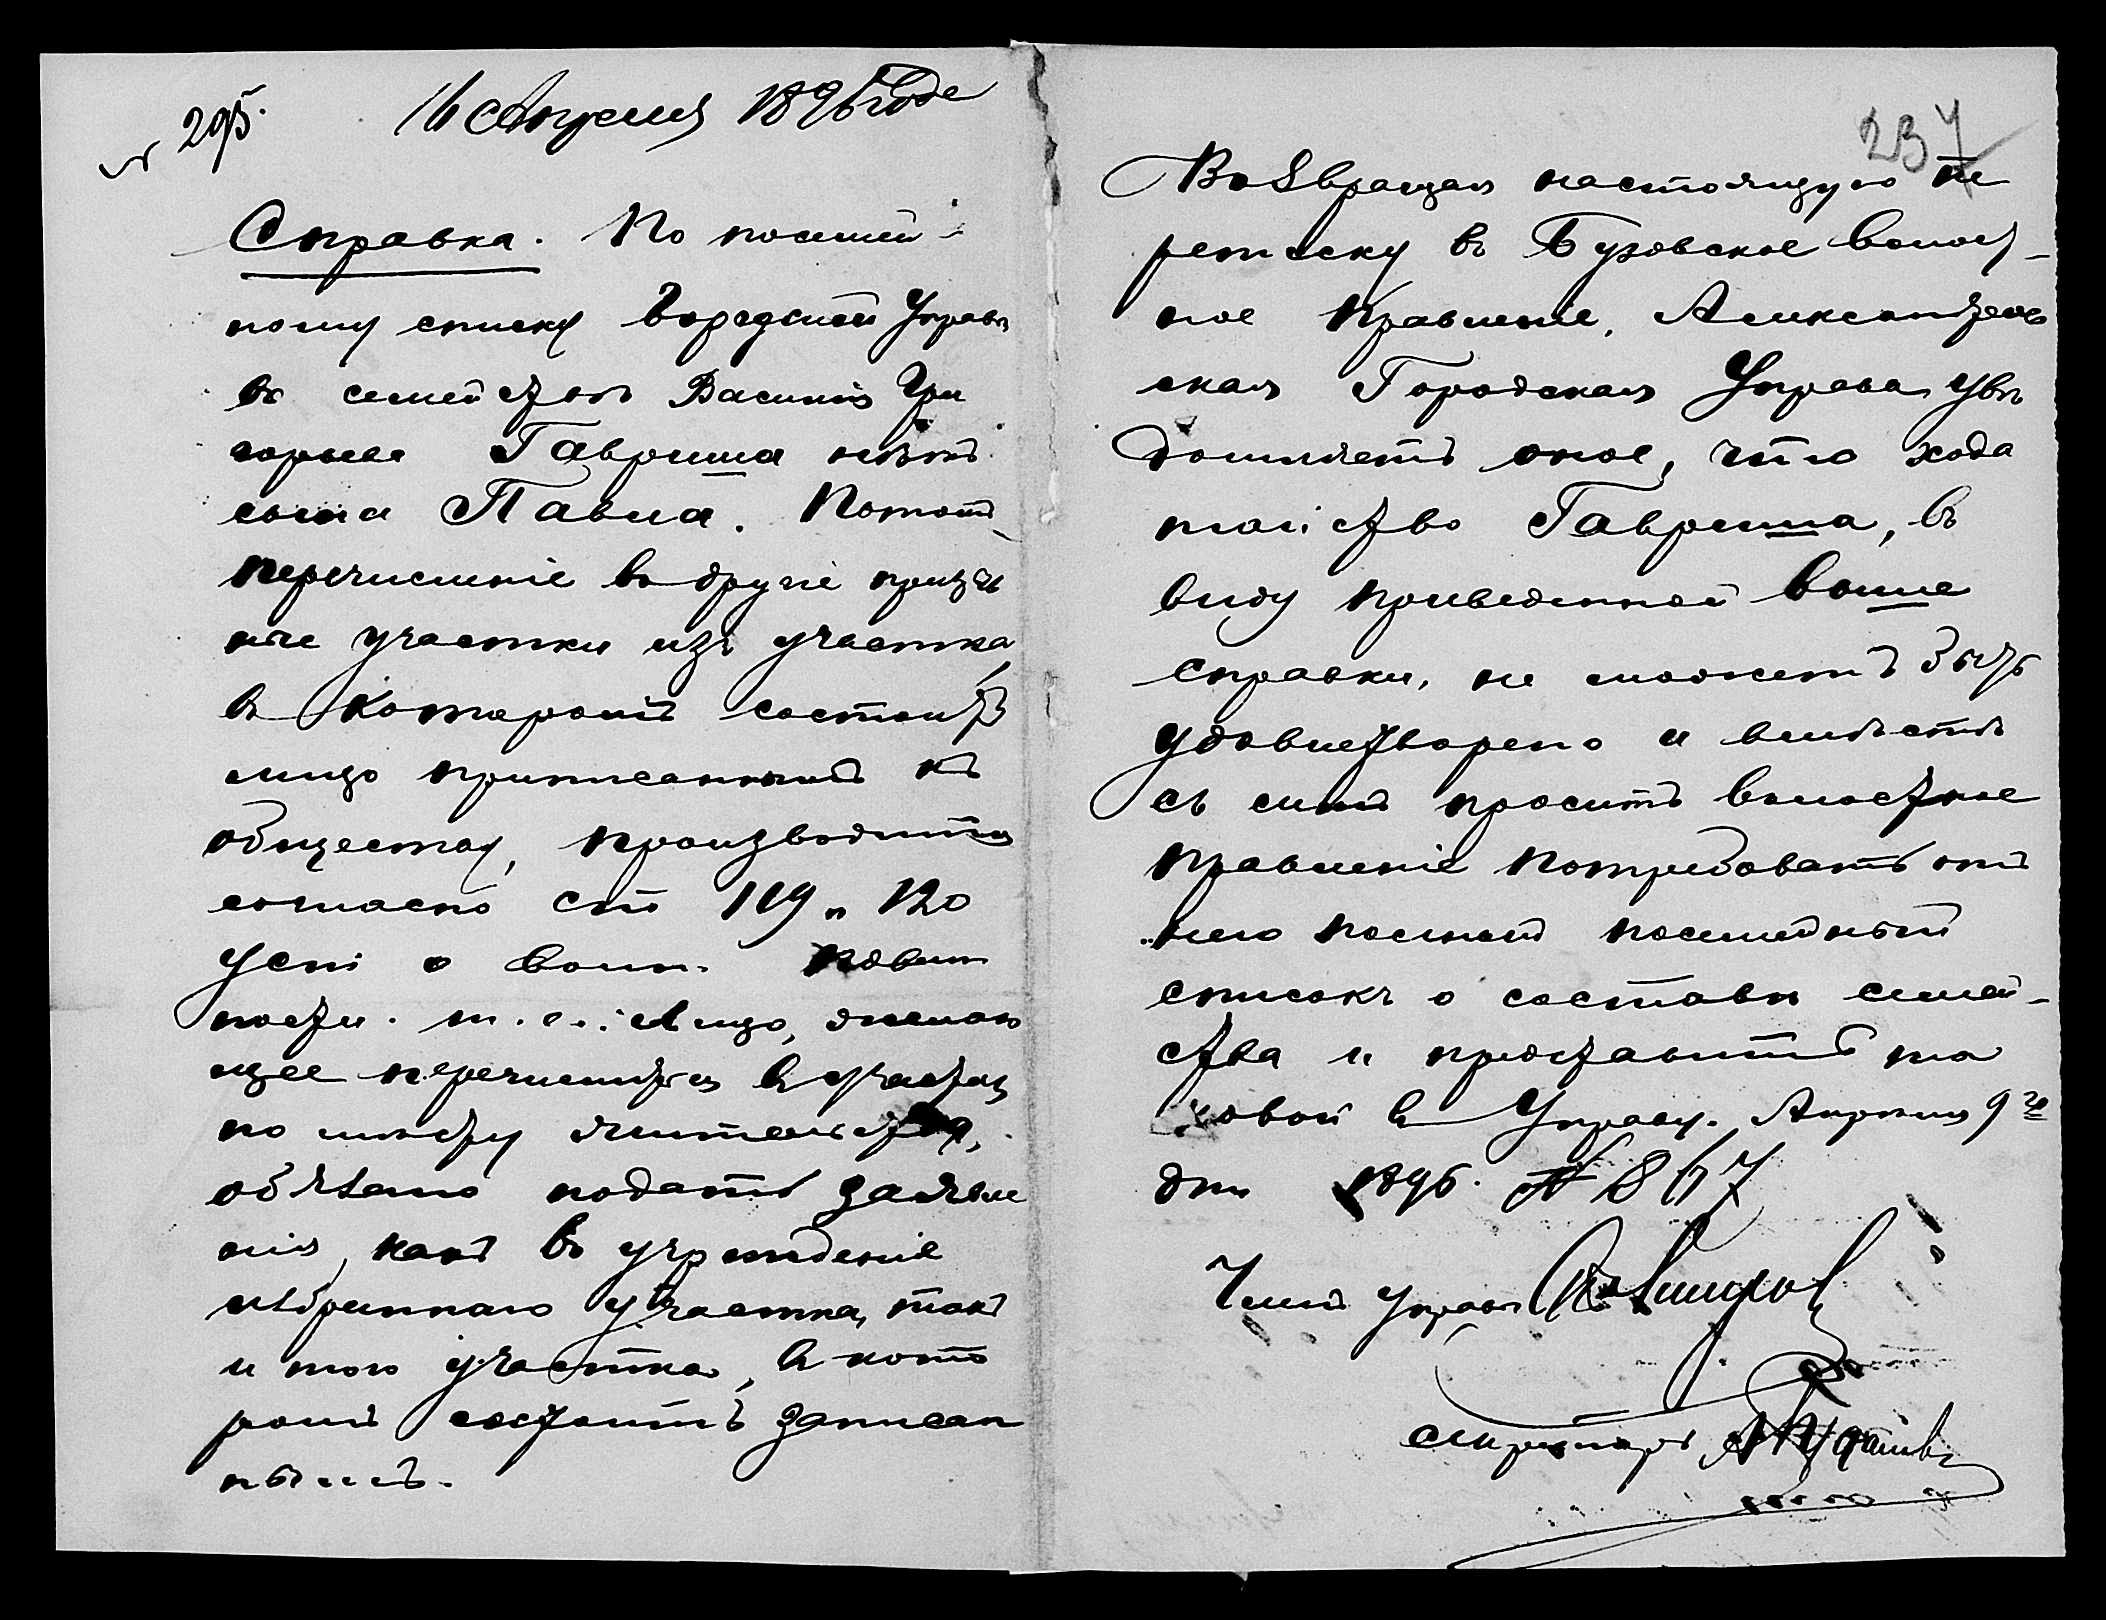 № 295. 16 Апреля 1896 года
Справка. По посемей-
ному списку Городской Управы
въ семействѣ Василія Гри
горьева Гавриша нѣтъ
сына Павла. Потомъ
перечисленіе въ другіе призыв
ные участки изъ участка,
въ которомъ состоитъ
лицо приписаннымъ къ
обществу, производится
согласно ст 119 и 120
Уст о воин. повин
ности. т. е.: лицо, желаю
щее перечислится въ участокъ
по мѣсту жительства,
обязано подать заявле
нія, какъ въ учрежденіе
избраннаго участка, такъ
и того участка, въ кото
ромъ состоитъ записан
нымъ.
237
Возвращая настоящую пе
реписку въ Бузовское волост-
ное Правленіе, Александров
ская Городская Управа увѣ
домляетъ оное, что хода
тайство Гавриша, въ
виду приведенной выше
справки, не можетъ быть
удовлетворено и вмѣстѣ
съ симъ проситъ волостное
правленіе потребовать отъ
него полный посемейный
списокъ о составѣ семей-
ства и представить та
ковой въ Управу. Апрѣля 9го
дня 1896. № 867
Членъ Управы
Секретарь